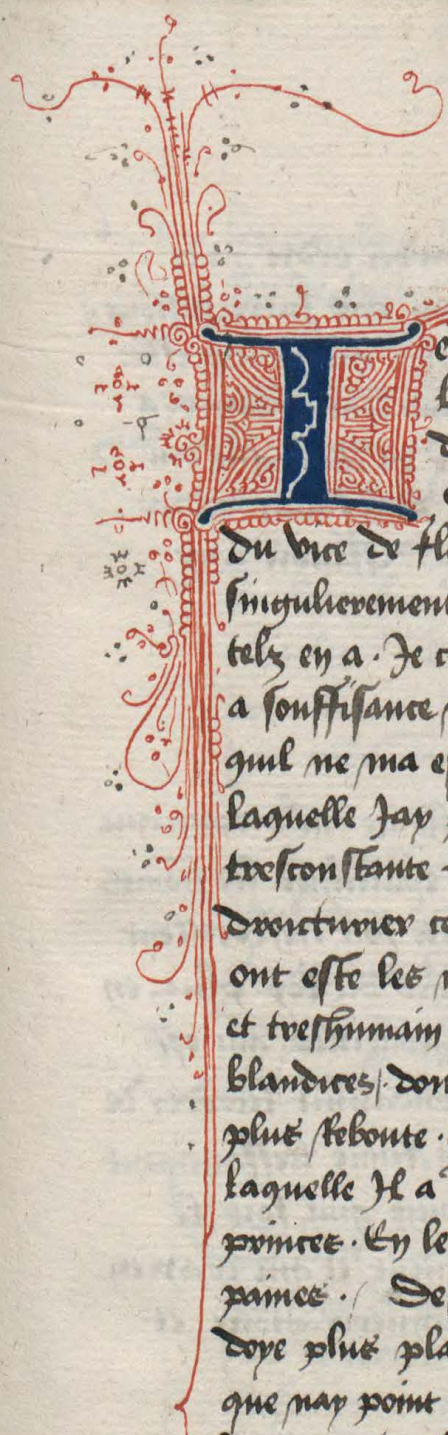 I
du vice de fl
singulierement
telz en a. Je c
a souffisance
quil ne ma e
laquelle Jay
tresconstante
droicturier ce
ont este les
et treshumain
blandices / don
plus Reboute.
laquelle Il a
princes. En le
paines. / De
doye plus pla
que nay point